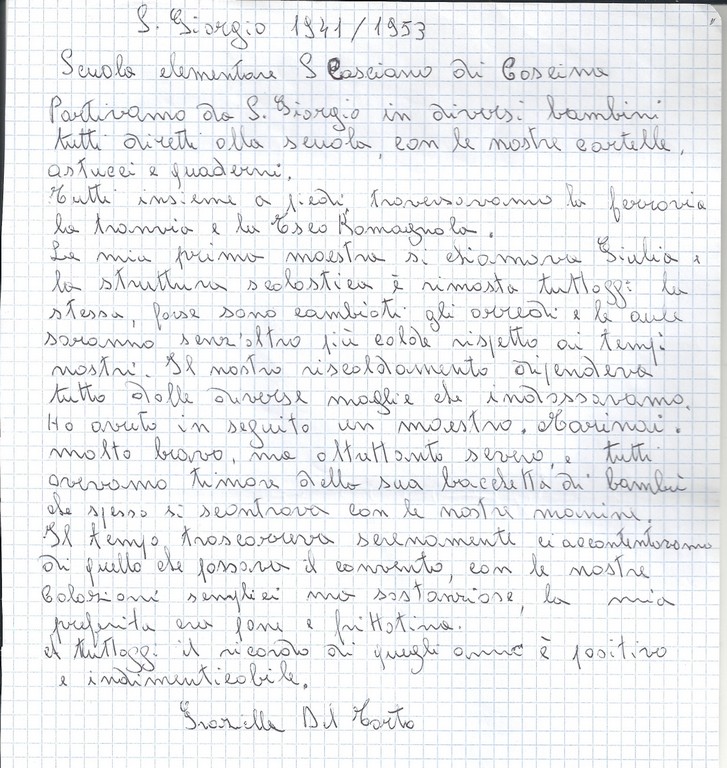 S. Giorgio 1941/1953
Scuola elementare S Casciano di Coscina
Partivamo da S. Giorgio in diversi bambini
tutti diretti alla scuola, con le nostre cartelle,
astucci e quaderni.
Tutti insieme a piedi, traversavamo la ferrovia
la tranvia e la Tsco Romagnola.
La mia prima maestra si chiamava Giulia e
la struttura scolastica è rimasta tutt'oggi la
stessa, forse sono cambiati gli arredi e le aule
saranno senz'altro più calde rispetto ai tempi
nostri. Il nostro riscaldamento dipendeva
tutto dalle diverse maglie che indossavamo.
Ho avuto in seguito un maestro, Marinai.
molto bravo, ma altrettanto severo, e tutti
avevamo timore della sua bacchetta di bambù
che spesso si scontrava con le nostre manine.
Il tempo trascorreva serenamente ci accontentavamo
di quello che passava il convento, con le nostre
Colazioni semplici ma sostanziose, la mia
preferita era pane e frittatina.
A tutt'oggi il ricordo di quegli anni è positivo
e indimenticabile.
Graziella Del Corto